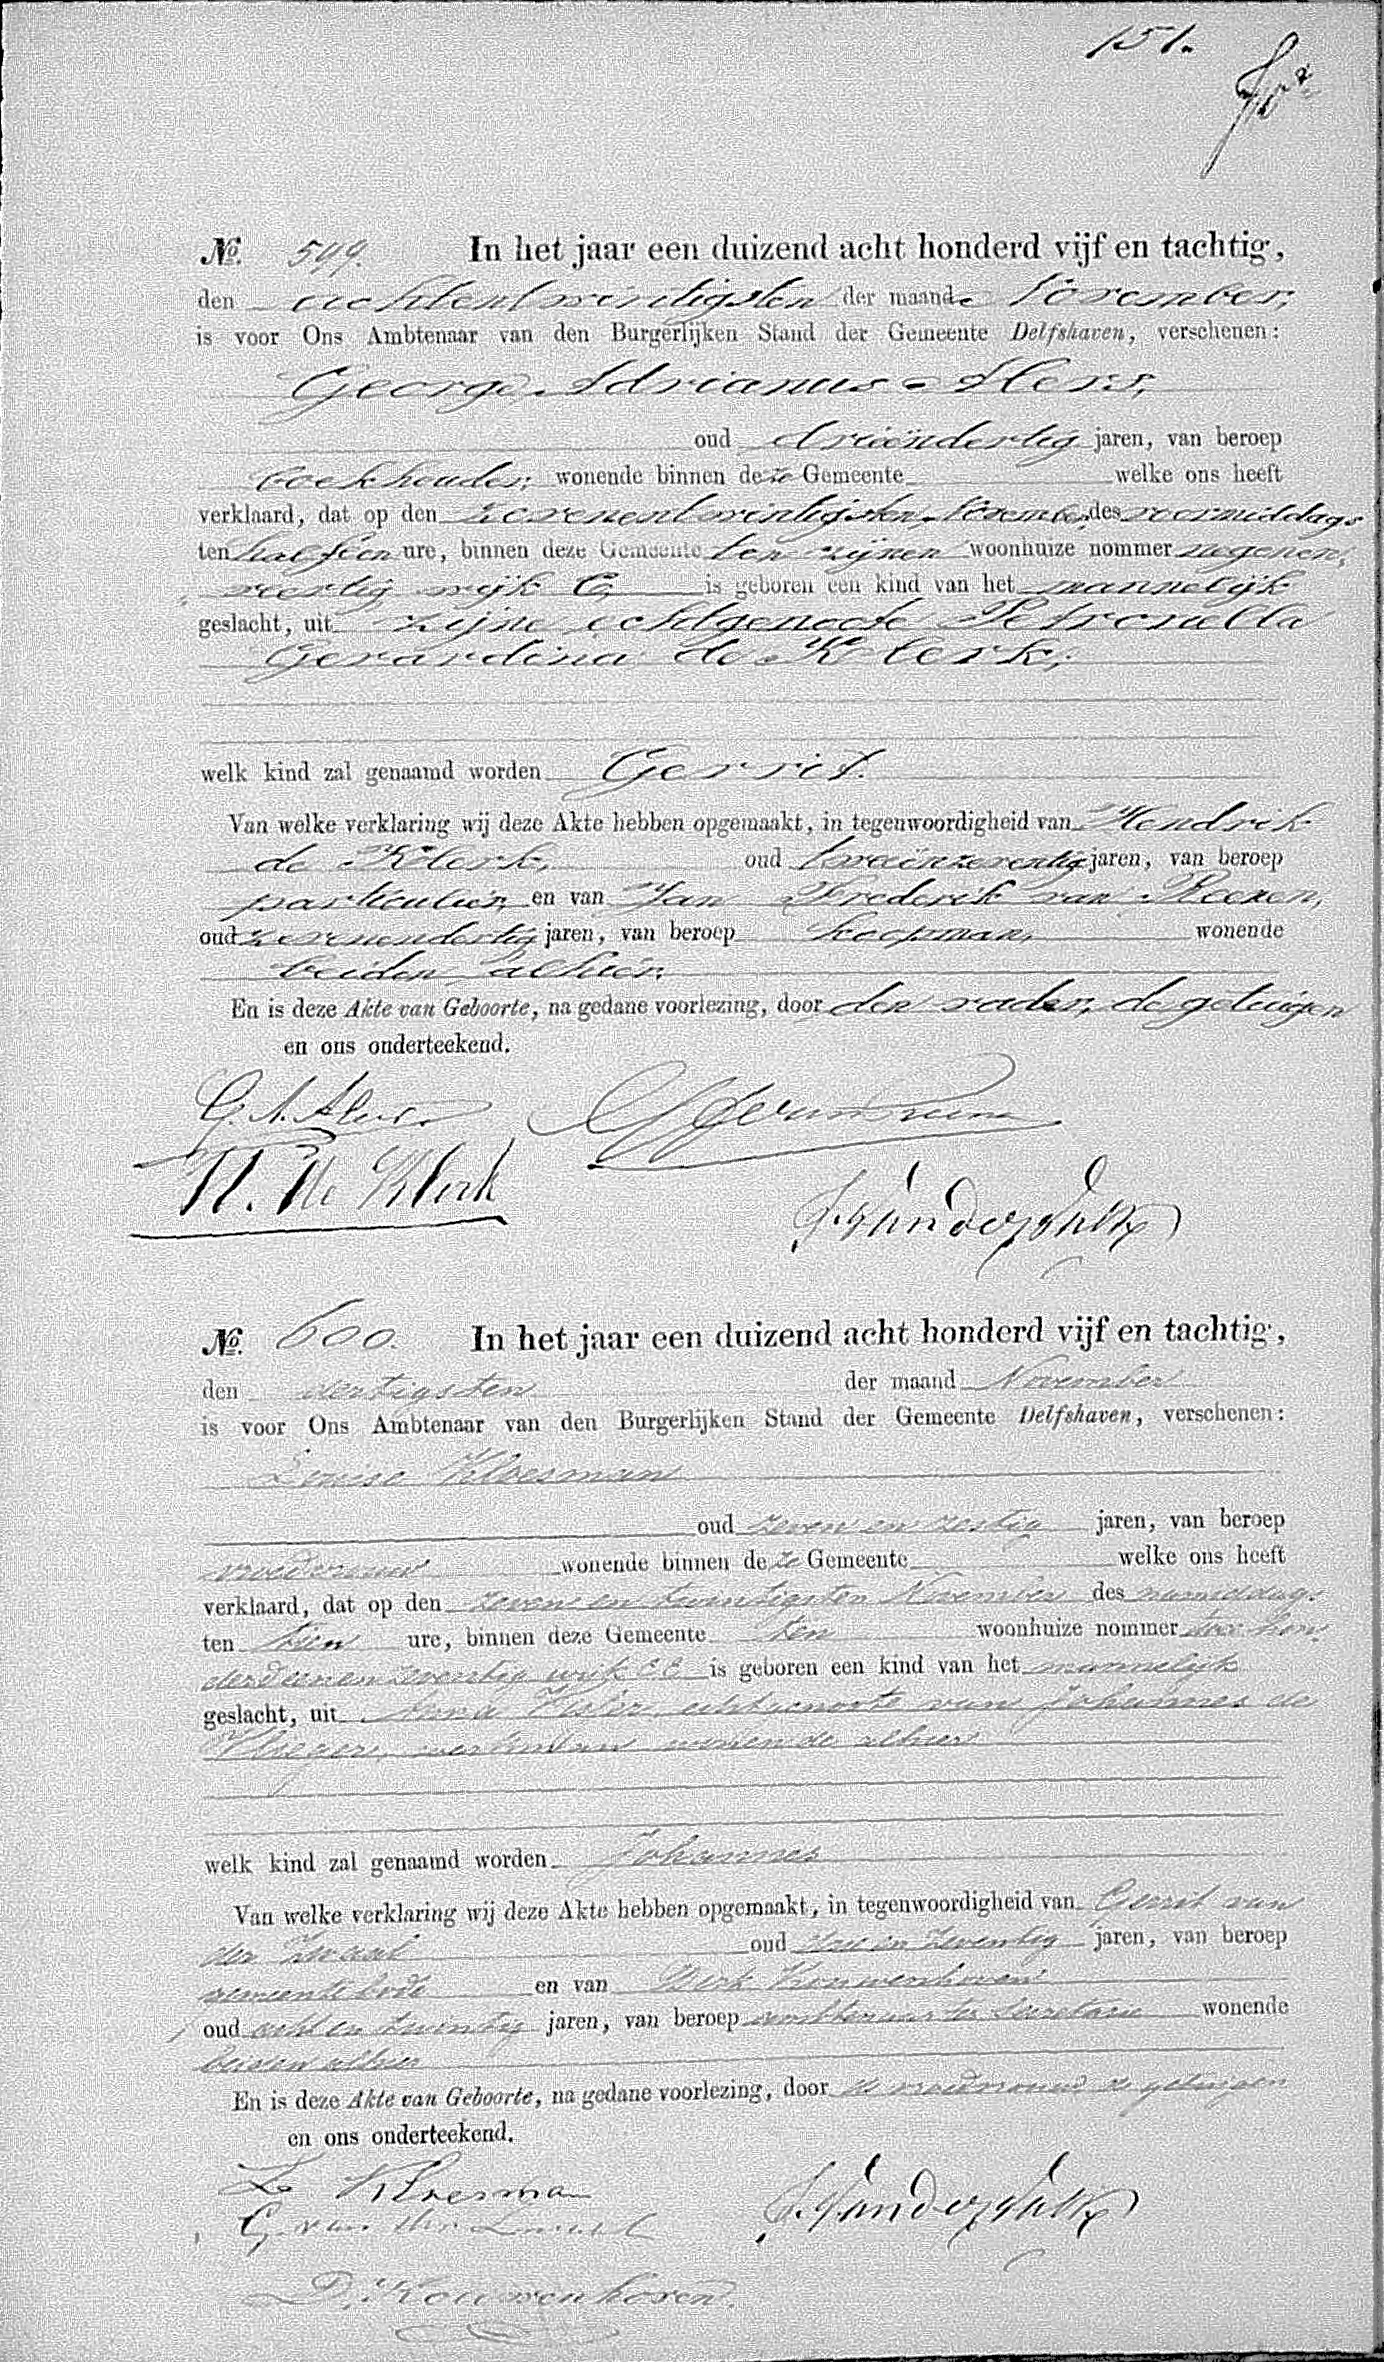 151.
No. 599. In het jaar een duizend acht honderd vijf en tachtig,
den achtentwintigsten der maand November,
is voor Ons Ambtenaar van den Burgerlijken Stand der Gemeente Delfshaven, verschenen:
George Adrianus Alers,
oud drieëndertig jaren, van beroep
boekhouder, wonende binnen deze Gemeente welke ons heeft
verklaard, dat op den zevenentwintigsten November des voormiddags
ten half een ure, binnen deze Gemeente ten zijnen woonhuize nommer negenen,
veertig wijk C, is geboren een kind van het mannelijk
geslacht, uit zijne echtgenoote Petronella
Gerardina de Klerk,
welk kind zal genaamd worden Gerrit.
Van welke verklaring wij deze Akte hebben opgemaakt, in tegenwoordigheid van Hendrik
de Klerk, oud tweeënzeventig jaren, van beroep
particulier, en van Jan Frederik van Reenen,
oud zevenendertig jaren, van beroep koopman, wonende
beiden alhier.
En is deze Akte van Geboorte, na gedane voorlezing, door den vader, de getuigen
en ons onderteekend.
G. A. Alers
H. de Klerk
No. 600. In het jaar een duizend acht honderd vijf en tachtig,
den dertigsten der maand November
is voor Ons Ambtenaar van den Burgerlijken Stand der Gemeente Delfshaven, verschenen:
Louise Kloesman
oud zeven en zestig jaren, van beroep
vroedvrouw wonende binnen deze Gemeente welke ons heeft
verklaard, dat op den zeven en twintigsten November des namiddags
ten tien ure, binnen deze Gemeente ten woonhuize nommer twee hon
derdeenenzeventig wijk EE is geboren een kind van het mannelijk
geslacht, uit Anna Visser echtgenoote van Johannes de
Vlieger, werkman wonende alhier
welk kind zal genaamd worden Johannes
Van welke verklaring wij deze Akte hebben opgemaakt, in tegenwoordigheid van Gerrit van
der Zwaal oud drie en zeventig jaren, van beroep
gemeentebode en van Dirk Kouwenhoven
oud acht en twintig jaren, van beroep ambtenaar ter secretarie wonende
beiden alhier
En is deze Akte van Geboorte, na gedane voorlezing, door de vroedvrouw de getuigen
en ons onderteekend.
L. Kloesman
G. van der Zwaal
D. Kouwenhoven